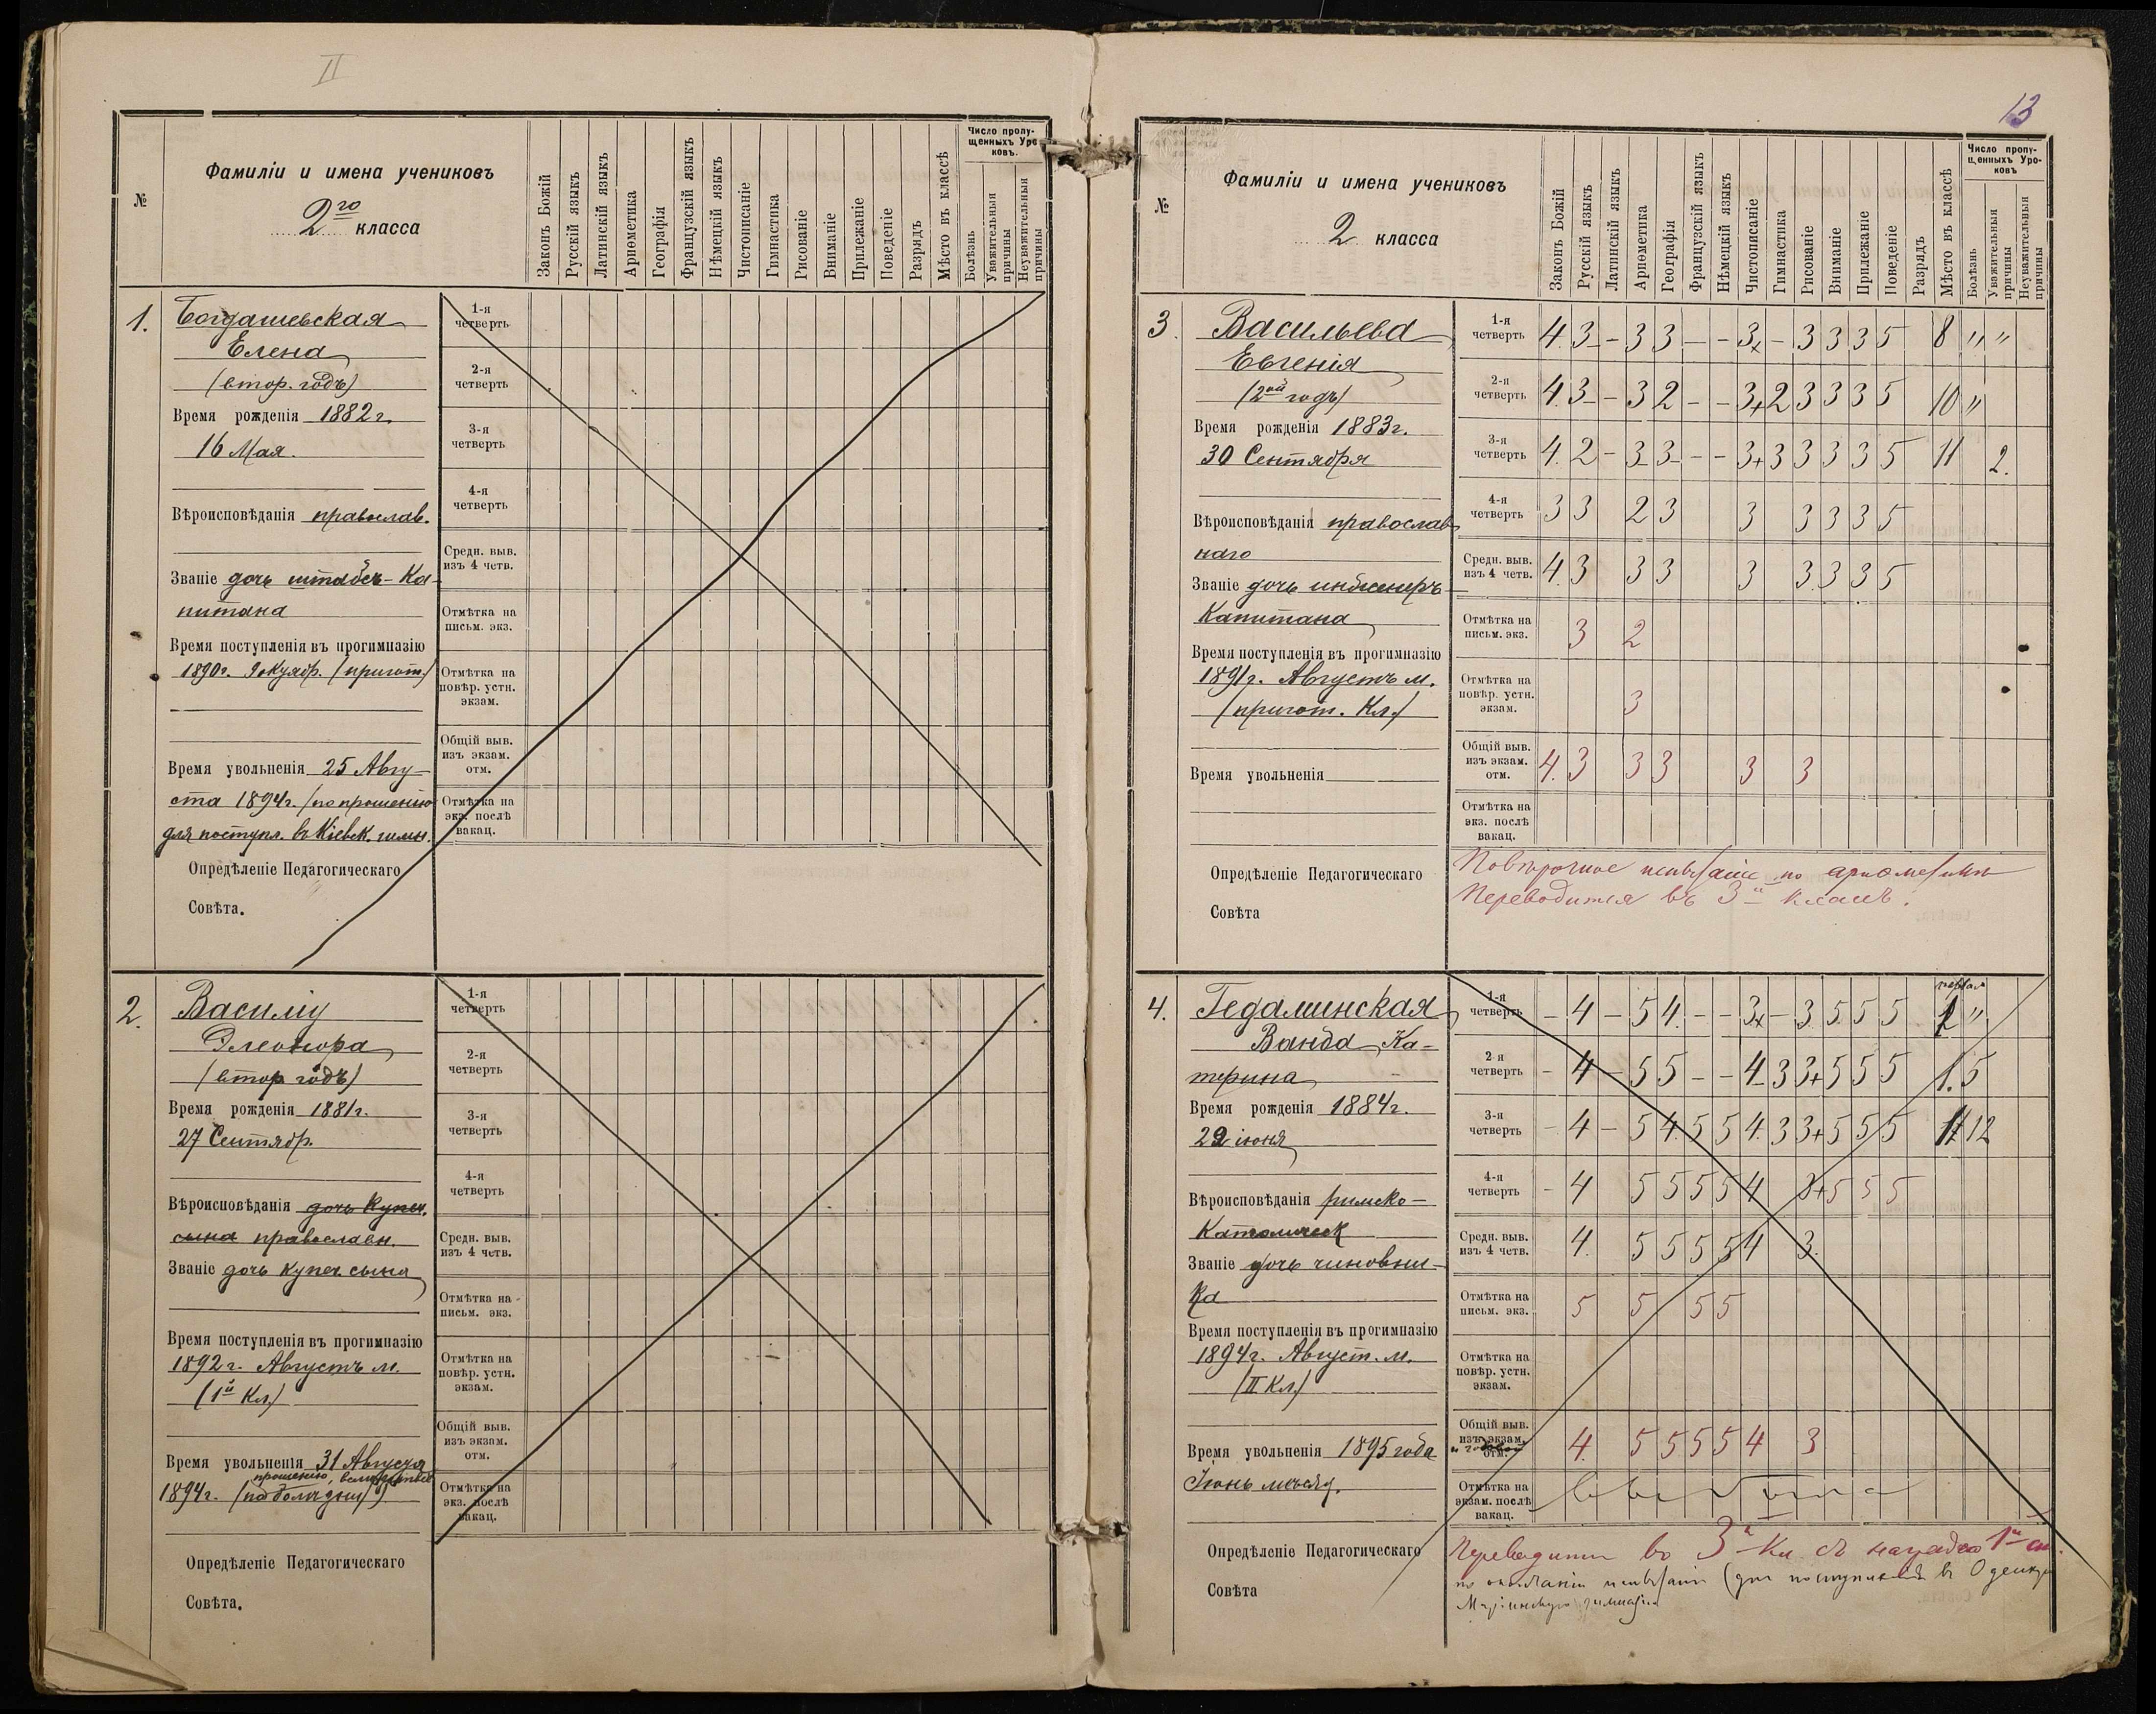 II
№
Фамиліи и имена учениковъ
2го класса
Законъ Божій
Русскій языкъ
Латинскій языкъ
Ариѳметика
Географія
Французскій языкъ
Нѣмецкій языкъ
Чистописаніе
Гимнастика
Рисованіе
Вниманіе
Прилежаніе
Поведеніе
Разрядъ
Мѣсто въ классѣ
Число пропу-
щенныхъ Уро
ковъ.
Болѣзнь
Уважительныя причины
Неуважительныя причины
1.
Богдашевская
Елена
(втор. годъ)
Время рожденія 1882 г.
16 Мая.
Вѣроисповѣданія православ.
Званіе дочь штабсъ-Ка-
питана
Время поступленія въ прогимназію
1890 г. (пригот.)
Время увольненія 25 Авгу-
ста 1894 г. (по прошенію
для поступл. въ Кіевск. гимн.
Опредѣленіе Педагогическаго
Совѣта.
1-я четверть
2-я четверть
3-я четверть
4-я четверть
Средн. выв. изъ 4 четв.
Отмѣтка на письм. экз.
Отмѣтка на повѣр. устн. экзам.
Общій выв. изъ экзам. отм.
Отмѣтка на экз. послѣ вакац.
2.
Василіу
Элеонора
(втор годъ)
Время рожденія 1881 г.
27 Сентябр.
Вѣроисповѣданія дочь Купеч.
сына православн.
Званіе дочь купеч. сына
Время поступленія въ прогимназію
1892 г. Августъ м.
(1й Кл)
Время увольненія 31 Августа
прошенію,
1894 г. (по
Опредѣленіе Педагогическаго
Совѣта.
1-я четверть
2-я четверть
3-я четверть
4-я четверть
Средн. выв. изъ 4 четв.
Отмѣтка на письм. экз.
Отмѣтка на повѣр. устн. экзам.
Общій выв. изъ экзам. отм.
Отмѣтка на экз. послѣ вакац.
13
№
Фамиліи и имена учениковъ
2 класса
Законъ Божій
Русскій языкъ
Латинскій языкъ
Ариѳметика
Географія
Французскій языкъ
Нѣмецкій языкъ
Чистописаніе
Гимнастика
Рисованіе
Вниманіе
Прилежаніе
Поведеніе
Разрядъ
Мѣсто въ классѣ
Число пропу-
щенныхъ Уро-
ковъ
Болѣзнь
Уважительныя причины
Неуважительныя причины
3.
Васильева
Евгенія
(2ой годъ)
Время рожденія 1883 г.
30 Сентября
Вѣроисповѣданія православ
наго
Званіе дочь инженеръ
Капитана
Время поступленія въ прогимназію
1891 г. Августъ м.
(пригот. Кл.)
Время увольненія
1-я четверть 4 3 - 3 3 - - 3 - 3 3 3 5 8 " "
2-я четверть 4 3 - 3 2 - - 3+ 2 3 3 3 5 10 "
3-я четверть 4 2 - 3 3 - - 3+ 3 3 3 3 5 11 2.
4-я четверть 3 3 2 3 3 3 3 3 5
Средн. выв. изъ 4 четв. 4 3 3 3 3 3 3 3 5
Отмѣтка на письм. экз. 3 2
Отмѣтка на повѣр. устн. экзам. 3
Общій выв. изъ экзам. отм. 4 3 3 3 3 3
Отмѣтка на экз. послѣ вакац.
Опредѣленіе Педагогическаго
Совѣта
Повѣрочное испытаніе по ариѳметикѣ
Переводится въ 3й классъ.
4.
Гедаминская
Ванда Ка-
терина
Время рожденія 1884 г.
29 іюня
Вѣроисповѣданія римско-
Католическ
Званіе дочь чиновни-
ка
Время поступленія въ прогимназію
1894 г. Август. м.
(II Кл.)
Время увольненія 1895 года
Іюнь мѣсяц.
1-я четверть - 4 - 5 4 - - 3 - 3 5 5 5 1 "
2-я четверть - 4 - 5 5 - - 4 3 3+ 5 5 5 1. 5
3-я четверть - 4 - 5 4 5 5 4 3 3+ 5 5 5 1 12
4-я четверть - 4 5 5 5 5 4 3+ 5 5 5
Средн. выв. изъ 4 четв. 4 5 5 5 5 4 3
Отмѣтка на письм. экз. 5 5 5 5
Отмѣтка на повѣр. устн. экзам.
Общій выв. изъ экзам. отм. 4 5 5 5 5 4 3
Отмѣтка на экзам. послѣ вакац.
Опредѣленіе Педагогическаго
Совѣта
Переводится въ 3й Кл. съ наградою 1й ст.
по окончаніи испытаній (для поступленія въ Одесскую
Маріинскую гимназію